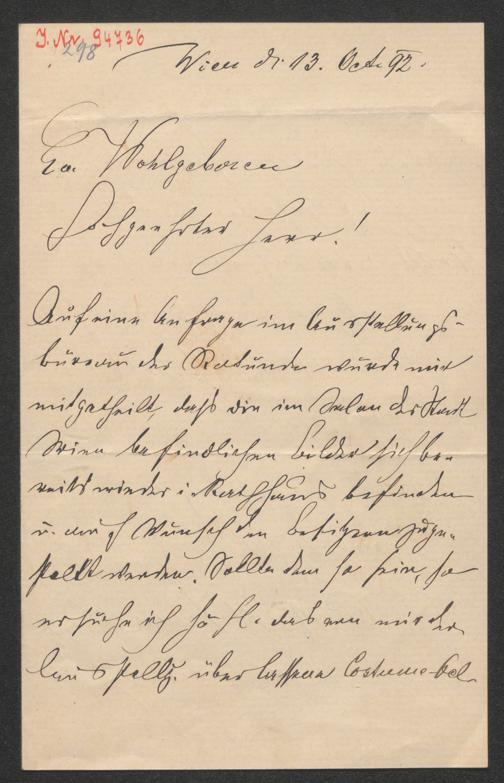 J. Nr. 94736
298
Wien d. 13. Oct. 92.
Ew. Wohlgeboren
Hochgeehrter Herr!
Auf eine Anfrage im Ausstellungs-
bureau der Rotunde wurde mir
mitgetheilt, daß die im Salon der Stadt
Wien befindlichen Bilder sich be-
reits wieder i. Rathhaus befinden
u. auf Wunsch den Besitzern zuge-
stellt werden. Sollte dem so sein, so
ersuche ich höfl. das von mir der
Ausstellg. überlassene Costume-